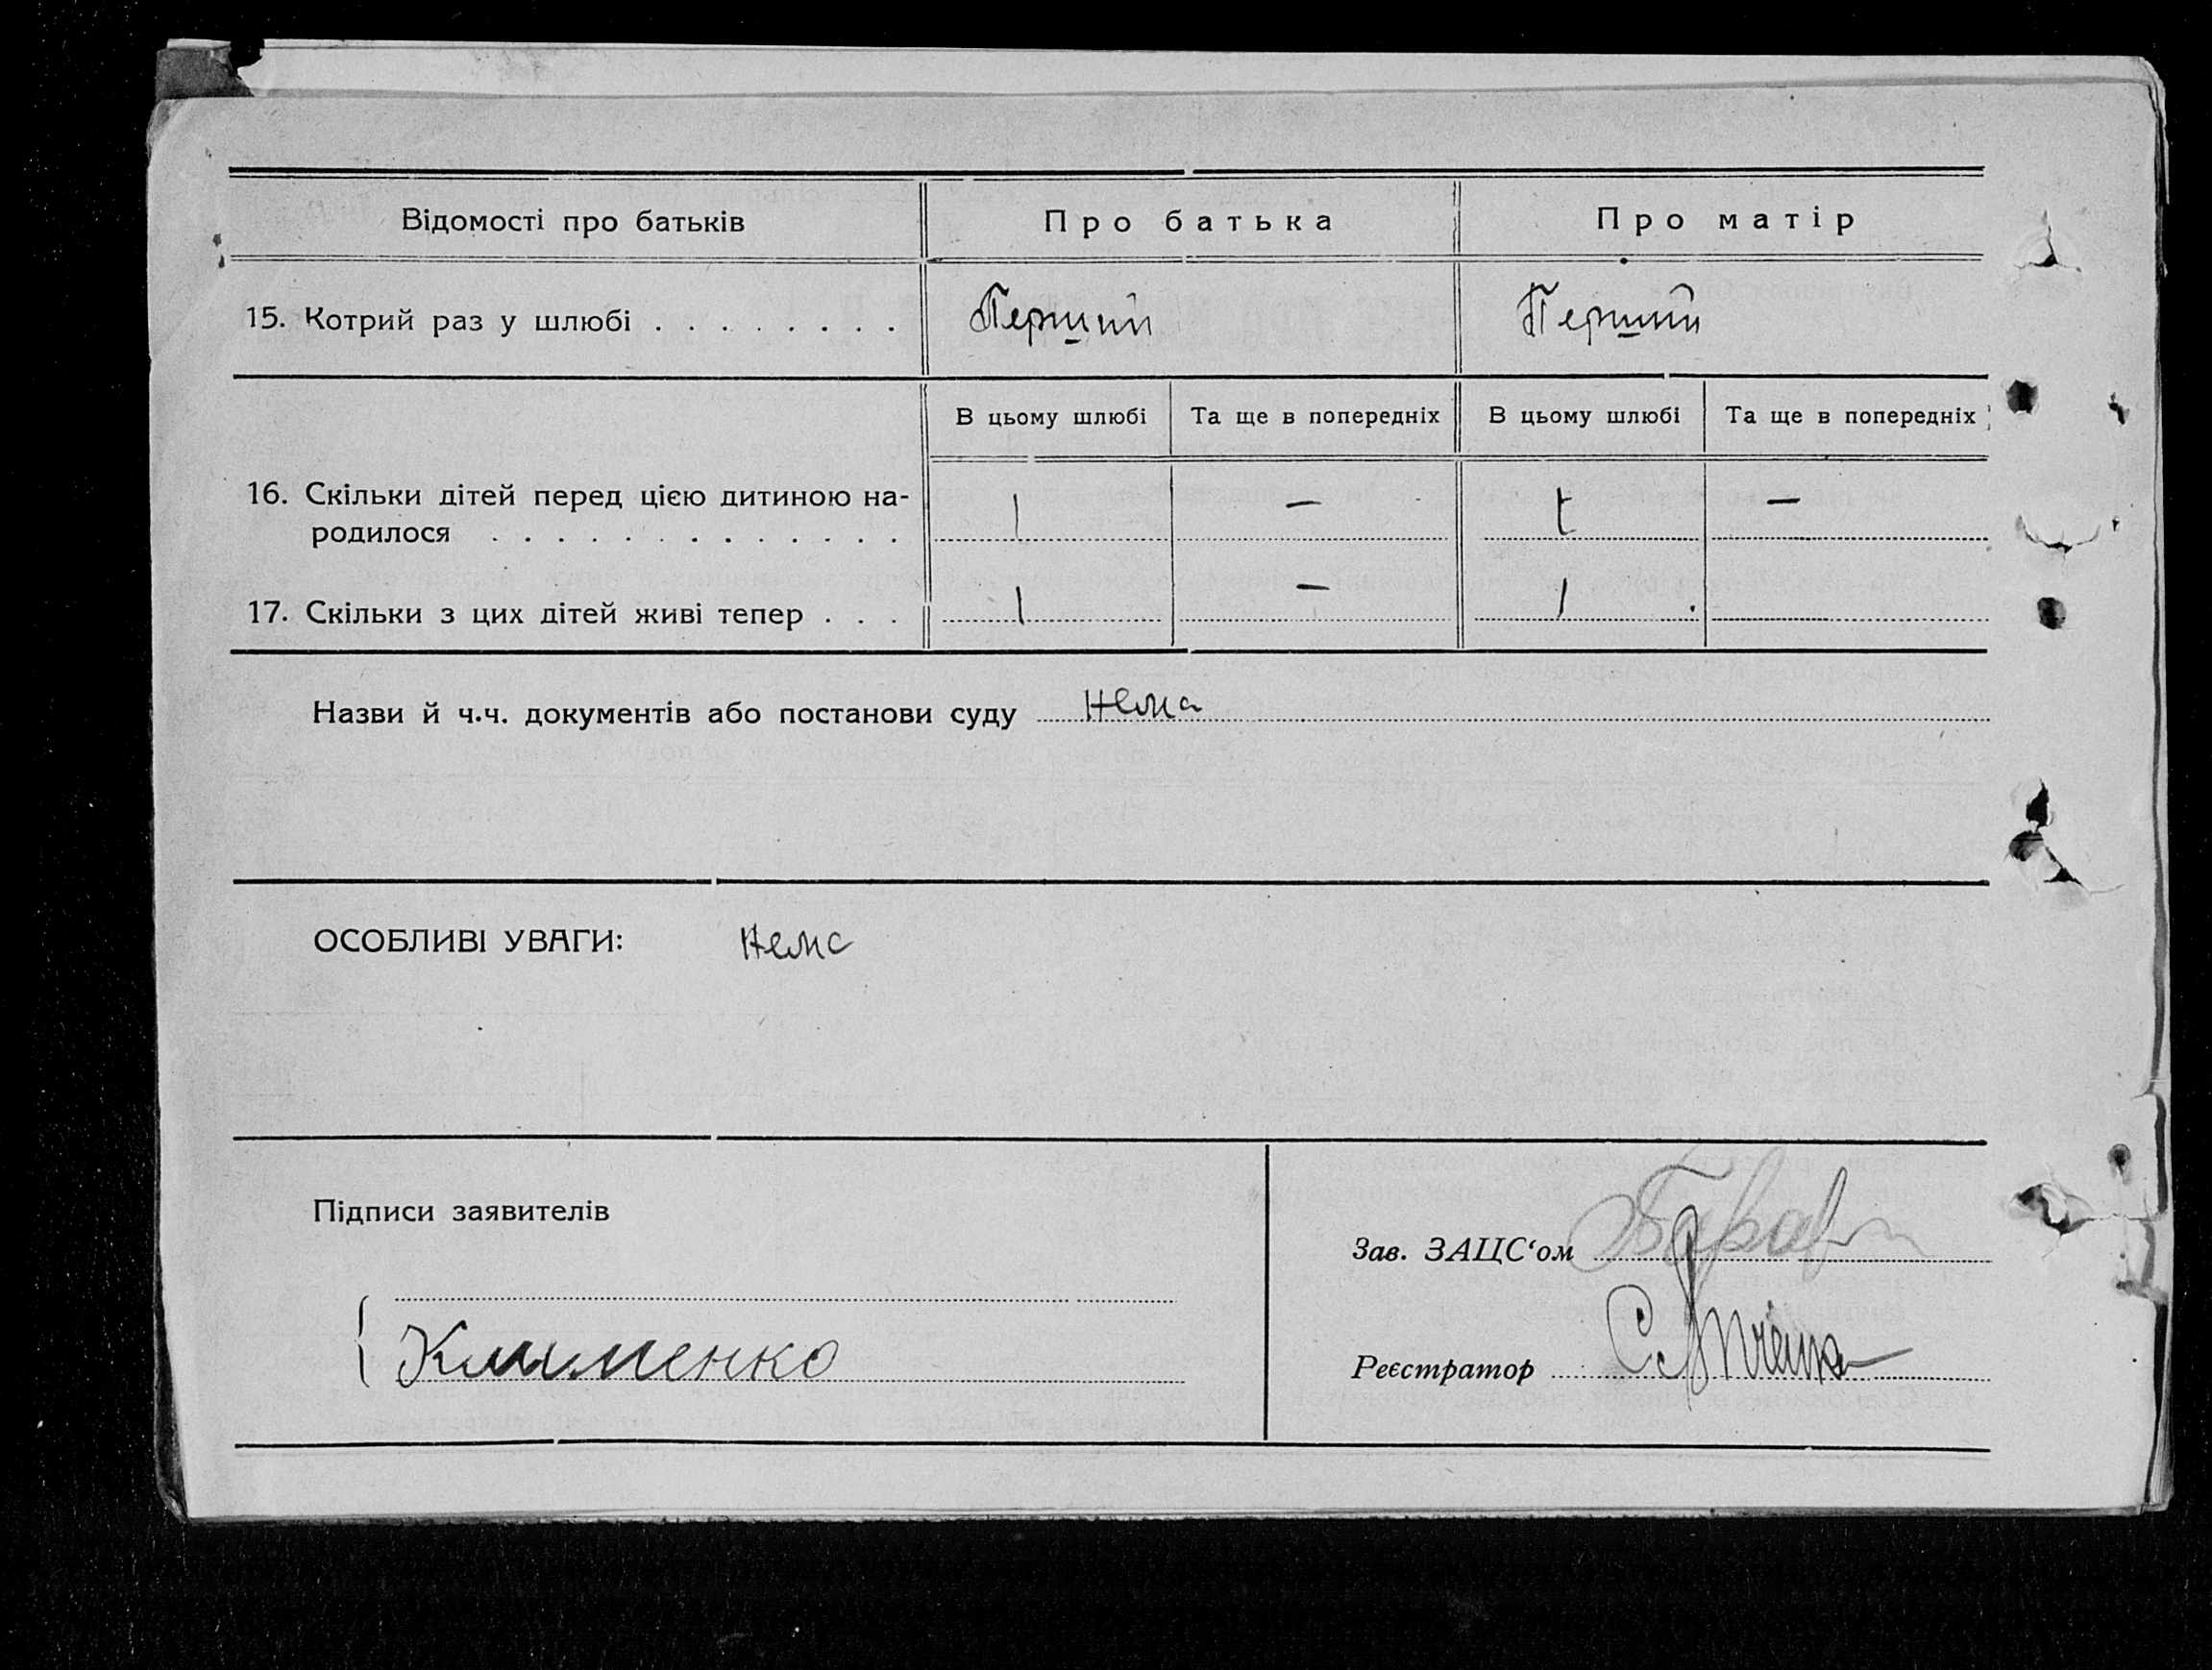 Відомості про батьків Про батька Про матір
15. Котрий раз у шлюбі . . . . . . . . Перший Перший
В цьому шлюбі Та ще в попередніх В цьому шлюбі Та ще в попередніх
16. Скільки дітей перед цією дитиною на-
родилося . . . . . . . . . . . . . 1 — 1 —
17. Скільки з цих дітей живі тепер . . . 1 — 1
Назви й ч.ч. документів або постанови суду нема
ОСОБЛИВІ УВАГИ: нема
Підписи заявителів
Зав. ЗАЦС‘ом
Клименко
Реєстратор